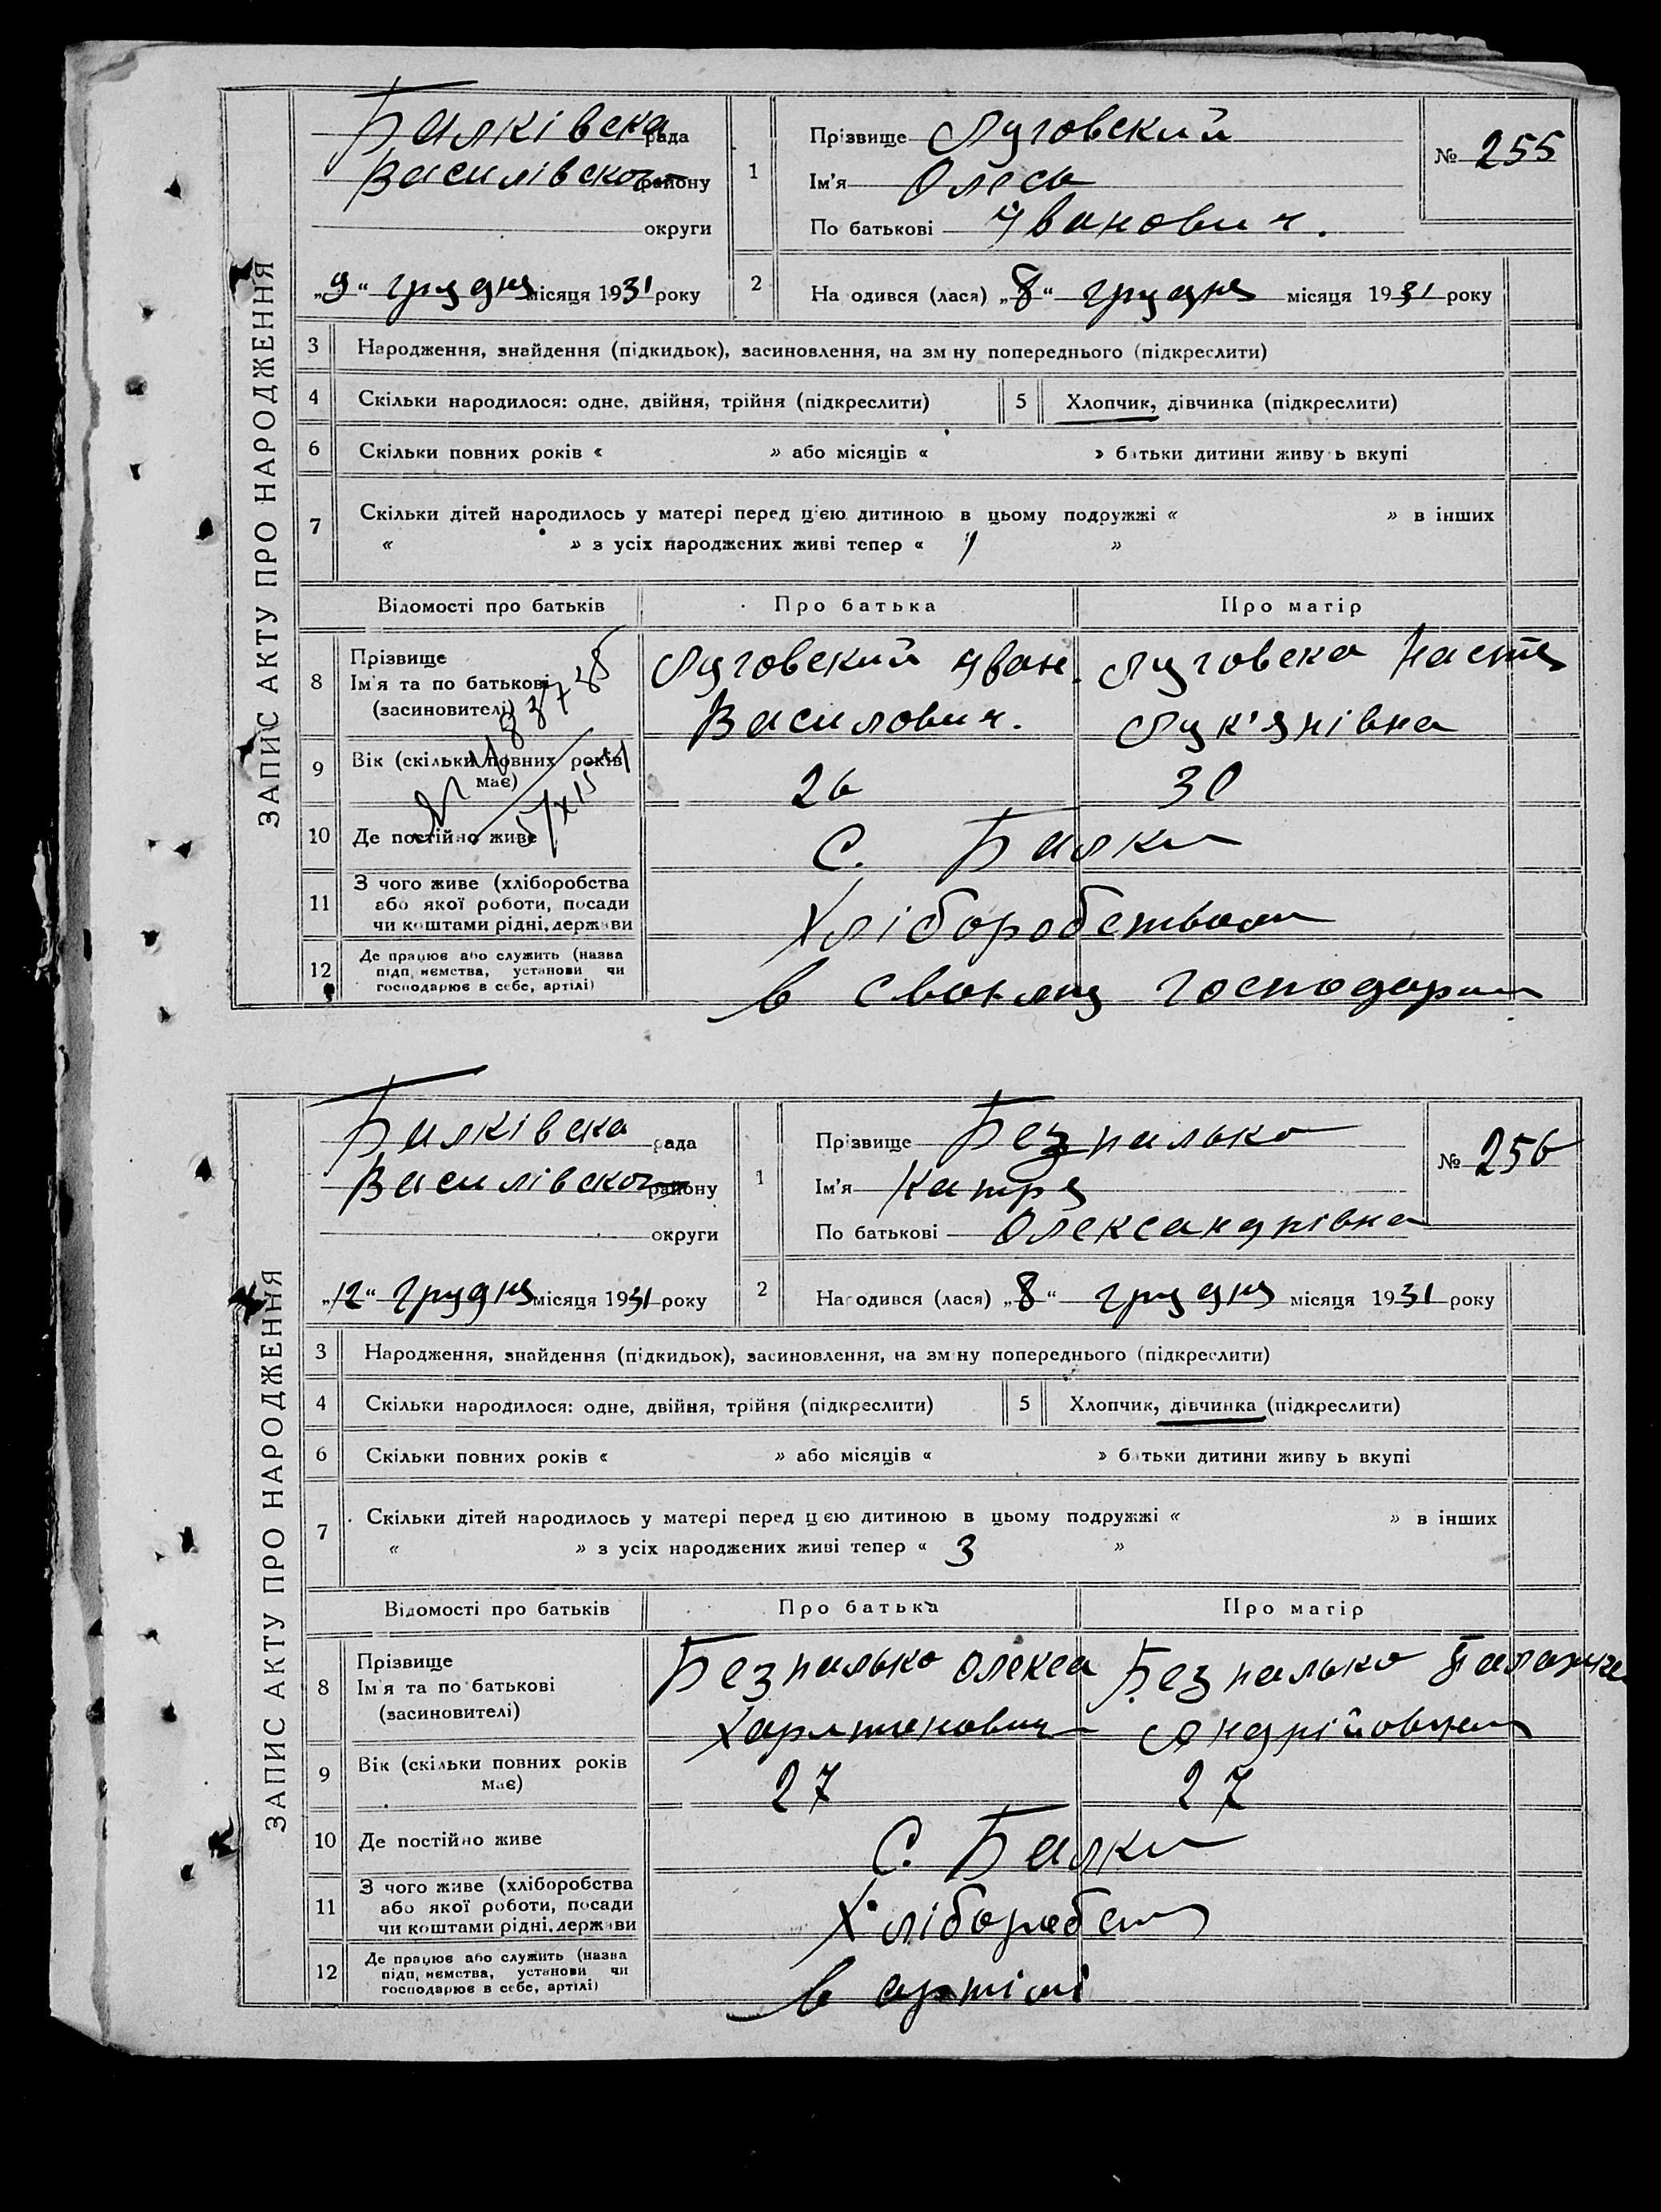 ЗАПИС АКТУ ПРО НАРОДЖЕННЯ
Балківска рада
Василівского району
округи
„9“ грудня місяця 1931 року
1
Прізвище Луговский
Ім'я Олесь
По батькові Иванович.
№ 255
2 На одився (лася) „8“ грудня місяця 1931 року
3 Народження, знайдення (підкидьок), засиновлення, на зм ну попереднього (підкреслити)
4 Скільки народилося: одне, двійня, трійня (підкреслити) 5 Хлопчик, дівчинка (підкреслити)
6 Скільки повних років « » або місяців « » батьки дитини живу ь вкупі
7 Скільки дітей народилось у матері перед цією дитиною в цьому подружжі « » в інших
« » з усіх народжених живі тепер « 1 »
Відомості про батьків Про батька Про матір
8 Прізвище
Ім'я та по батькові
(засиновителі)
Луговский Иван
Василович.
Луговска Настя
Лук'янівна
9 Вік (скільки повних років має) 26 30
10 Де постійно живе С. Балки
11 З чого живе (хліборобства
або якої роботи, посади
чи коштами рідні, держави
Хліборобством
12 Де працює або служить (назва
підп, иємства, установи чи
господарює в себе, артілі)
в своєму господарі
ЗАПИС АКТУ ПРО НАРОДЖЕННЯ
Балківска рада
Василівского району
округи
„12“ грудня місяця 1931 року
1
Прізвище Безпалько
Ім'я Катря
По батькові Олександрівна
№ 256
2 На одився (лася) „8“ грудня місяця 1931 року
3 Народження, знайдення (підкидьок), засиновлення, на зм ну попереднього (підкреслити)
4 Скільки народилося: одне, двійня, трійня (підкреслити) 5 Хлопчик, дівчинка (підкреслити)
6 Скільки повних років « » або місяців « » батьки дитини живу ь вкупі
7 Скільки дітей народилось у матері перед цією дитиною в цьому подружжі « » в інших
« » з усіх народжених живі тепер « 3 »
Відомості про батьків Про батька Про матір
8 Прізвище
Ім'я та по батькові
(засиновителі)
Безпалько Олекса
Харитонович
Безпалько
9 Вік (скільки повних років
має)
27 27
10 Де постійно живе С. Балки
11 З чого живе (хліборобства
або якої роботи, посади
чи коштами рідні, держави
Хлібороб
12 Де працює або служить (назва
підп, иємства, установи чи
господарює в себе, артілі)
в артілі